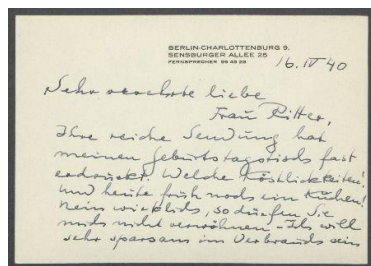 BERLIN-CHARLOTTENBURG 9.
SENSBURGER ALLEE 25
FERNSPRECHER 99 48 28
16. IV 40
Sehr verehrte liebe
Frau Ritter,
Ihre reiche Sendung hat
meinen Geburtstagstisch fast
erdrückt. Welche Köstlichkeiten!
Und heute früh noch ein Kuchen!
Nein wirklich, so dürfen Sie
mich nicht verwöhnen. Ich will
sehr sparsam im Verbrauch sein